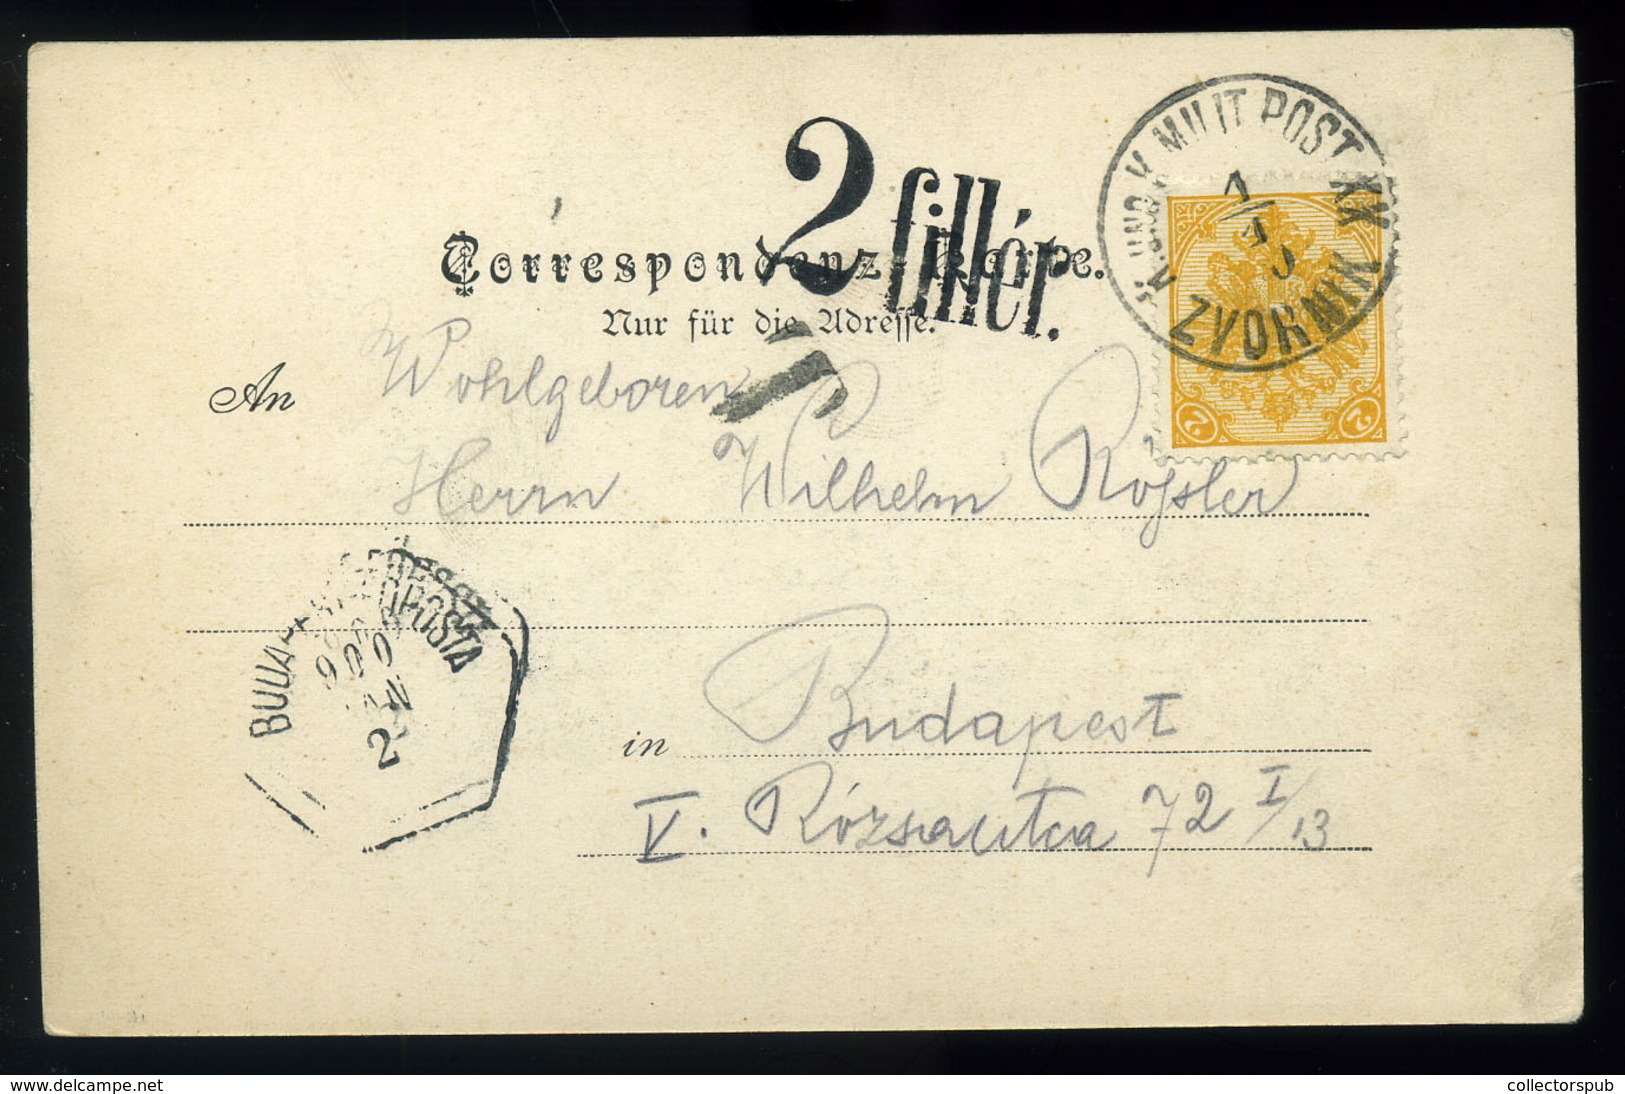 2 fillér.
K. UND K. MILIT POST XX
ZVORNIK
1/4
2 2
Correspondenz-Karte.
Nur für die Adresse.
An Wohlgeboren
Herrn Wilhelm Roſsler
POSTA
900
2
in Budapest
V. Rózsautca 72 I/13
www.delcampe.net
collectorspub